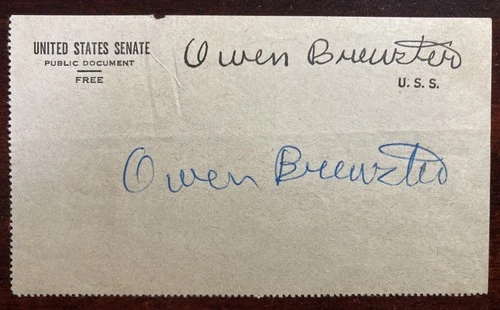 UNITED STATES SENATE
PUBLIC DOCUMENT
FREE
Owen Brewster
U. S. S.
Owen Brewster